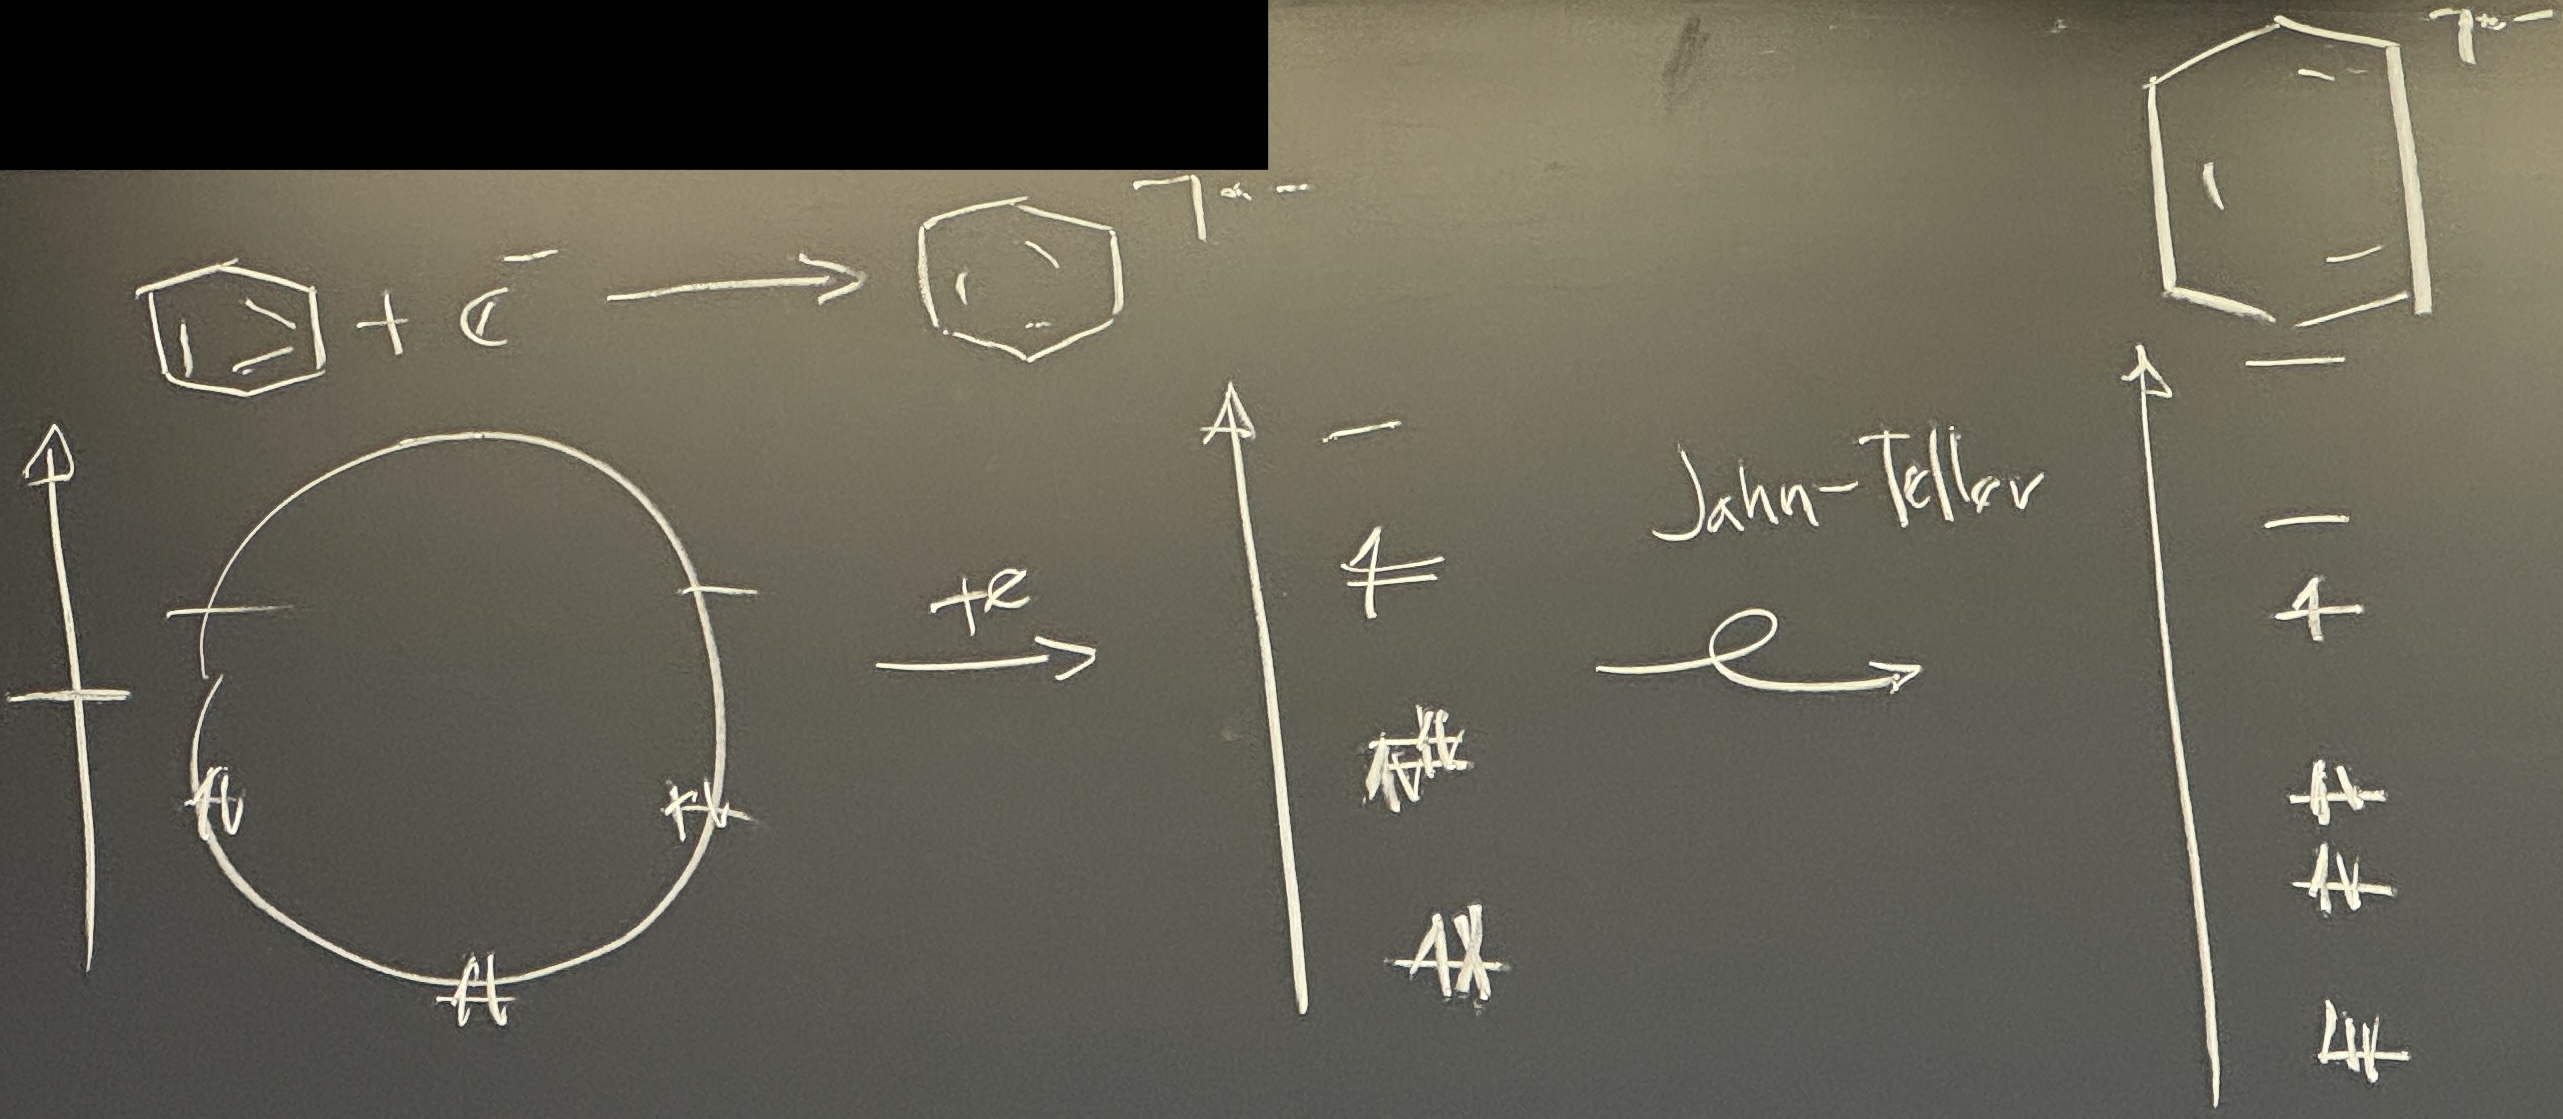 + e⁻
⁷•⁻
⁷•⁻
+e
Jahn-Teller